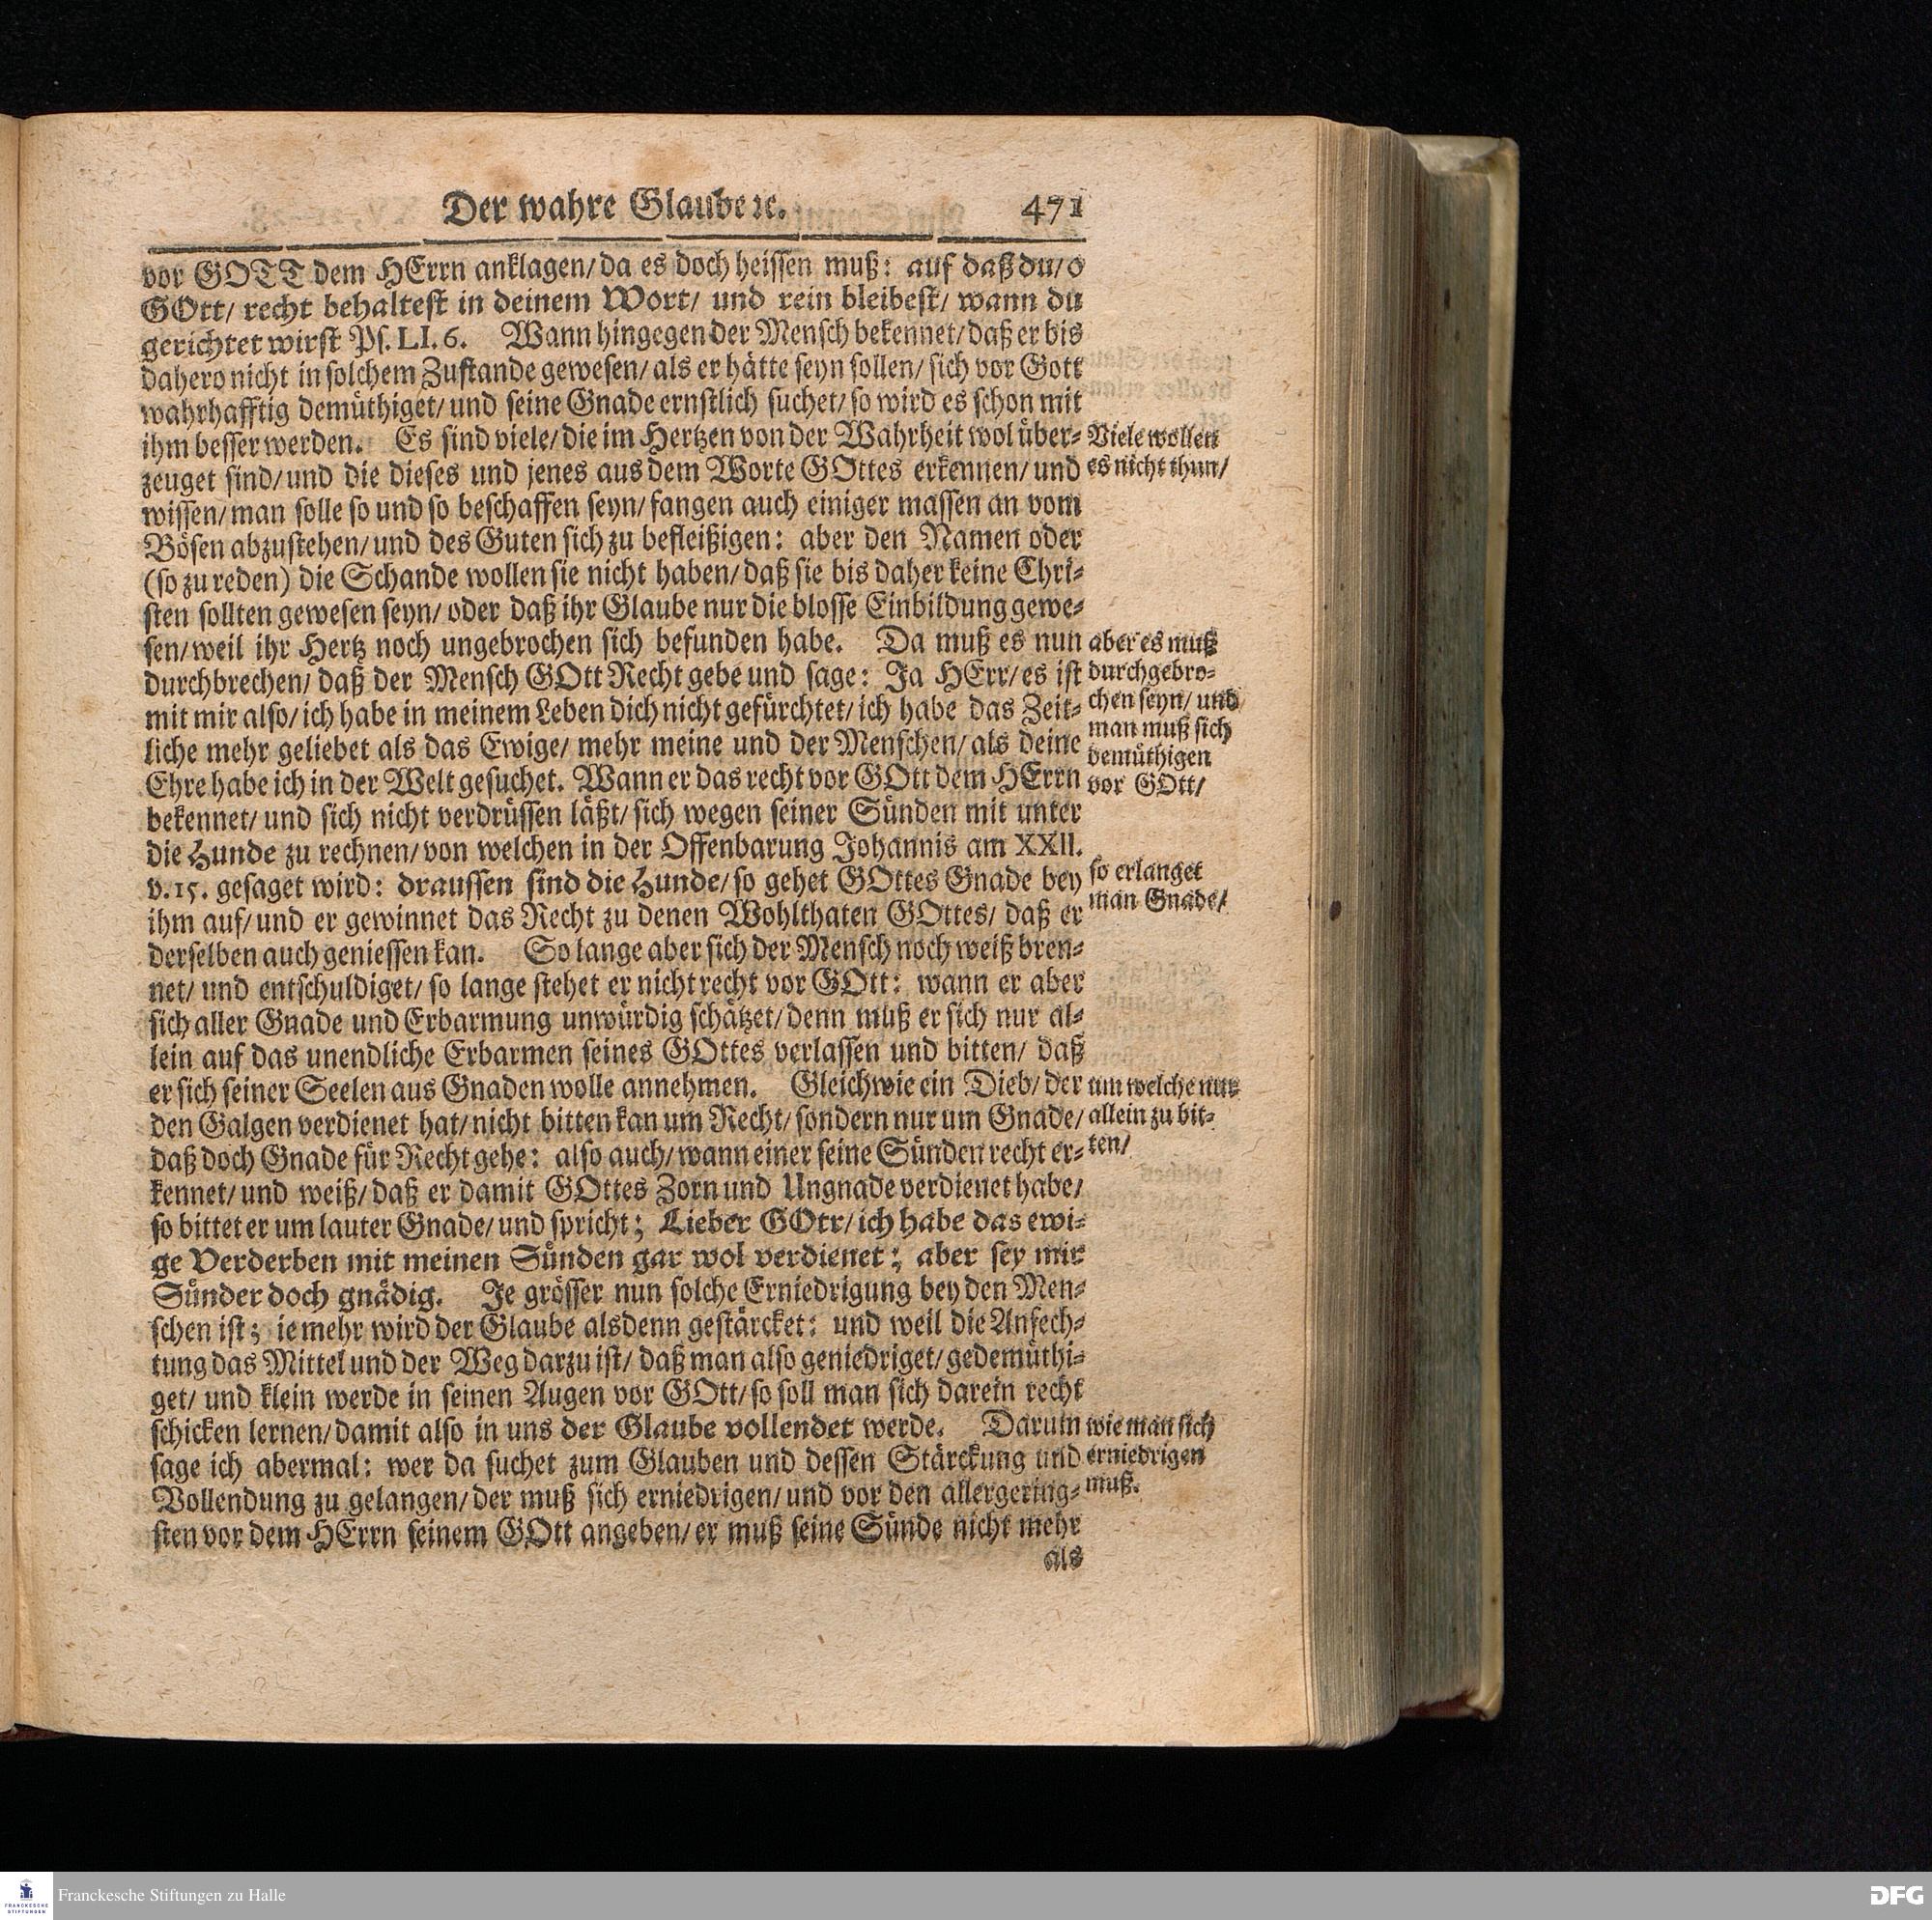 Der wahre Glaube ꝛc. 471
vor GOTT dem HErrn anklagen/ da es doch heissen muß: auf daß du/ o
GOtt/ recht behaltest in deinem Wort/ und rein bleibest/ wann du
gerichtet wirst Ps. LI. 6. Wann hingegen der Mensch bekennet/ daß er bis
dahero nicht in solchem Zustande gewesen/ als er hätte seyn sollen/ sich vor Gott
wahrhafftig demüthiget/ und seine Gnade ernstlich suchet/ so wird es schon mit
ihm besser werden. Es sind viele/ die im Hertzen von der Wahrheit wol über-
zeuget sind/ und die dieses und jenes aus dem Worte GOttes erkennen/ und
wissen/ man solle so und so beschaffen seyn/ fangen auch einiger massen an vom
Bösen abzustehen/ und des Guten sich zu befleißigen: aber den Namen oder
(so zu reden) die Schande wollen sie nicht haben/ daß sie bis daher keine Chri-
sten sollten gewesen seyn/ oder daß ihr Glaube nur die blosse Einbildung gewe-
sen/ weil ihr Hertz noch ungebrochen sich befunden habe. Da muß es nun
durchbrechen/ daß der Mensch GOtt Recht gebe und sage: Ja HErr/ es ist
mit mir also/ ich habe in meinem Leben dich nicht gefürchtet/ ich habe das Zeit-
liche mehr geliebet als das Ewige/ mehr meine und der Menschen/ als deine
Ehre habe ich in der Welt gesuchet. Wann er das recht vor GOtt dem HErrn
bekennet/ und sich nicht verdrüssen läßt/ sich wegen seiner Sünden mit unter
die Hunde zu rechnen/ von welchen in der Offenbarung Johannis am XXII.
v. 15. gesaget wird: draussen sind die Hunde/ so gehet GOttes Gnade bey
ihm auf/ und er gewinnet das Recht zu denen Wohlthaten GOttes/ daß er
derselben auch geniessen kan. So lange aber sich der Mensch noch weiß bren-
net/ und entschuldiget/ so lange stehet er nicht recht vor GOtt: wann er aber
sich aller Gnade und Erbarmung unwürdig schätzet/ denn muß er sich nur al-
lein auf das unendliche Erbarmen seines GOttes verlassen und bitten/ daß
er sich seiner Seelen aus Gnaden wolle annehmen. Gleichwie ein Dieb/ der
den Galgen verdienet hat/ nicht bitten kan um Recht/ sondern nur um Gnade/
daß doch Gnade für Recht gehe: also auch/ wann einer seine Sünden recht er-
kennet/ und weiß/ daß er damit GOttes Zorn und Ungnade verdienet habe/
so bittet er um lauter Gnade/ und spricht; Lieber GOtt/ ich habe das ewi-
ge Verderben mit meinen Sünden gar wol verdienet; aber sey mir
Sünder doch gnädig. Je grösser nun solche Erniedrigung bey den Men-
schen ist; ie mehr wird der Glaube alsdenn gestärcket: und weil die Anfech-
tung das Mittel und der Weg darzu ist/ daß man also geniedriget/ gedemüthi-
get/ und klein werde in seinen Augen vor GOtt/ so soll man sich darein recht
schicken lernen/ damit also in uns der Glaube vollendet werde. Darum
sage ich abermal: wer da suchet zum Glauben und dessen Stärckung und
Vollendung zu gelangen/ der muß sich erniedrigen/ und vor den allergering-
sten vor dem HErrn seinem GOtt angeben/ er muß seine Sünde nicht mehr
als
Viele wollen
es nicht thun/
aber es muß
durchgebro-
chen seyn/ und
man muß sich
demüthigen
vor GOtt/
so erlanget
man Gnade/
um welche nur
allein zu bit-
ten/
wie man sich
erniedrigen
muß.
Franckesche Stiftungen zu Halle
FRANCKESCHE
STIFTUNGEN
DFG